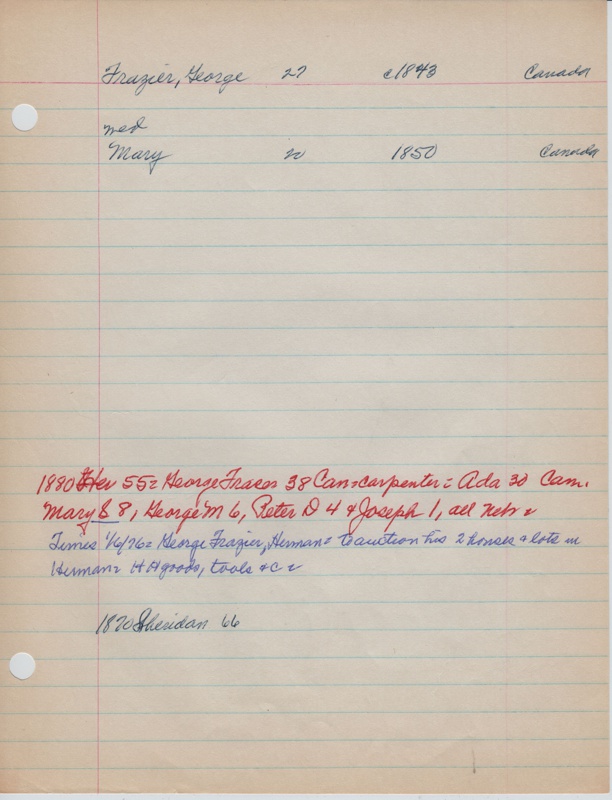 Frazier, George 27 c1843 Canada
wed
Mary 20 1850 Canada
1880 Her 55= George Fracos 38 Can=carpenter= Ada 30 Can.
Mary E 8, George M 6, Peter D 4 & Joseph 1, all Neb=
Times 1/6/76= George Frazier, Herman= to auction his 2 houses & lots in
Herman= HHgoods, tools &c=
1870 Sheridan 66